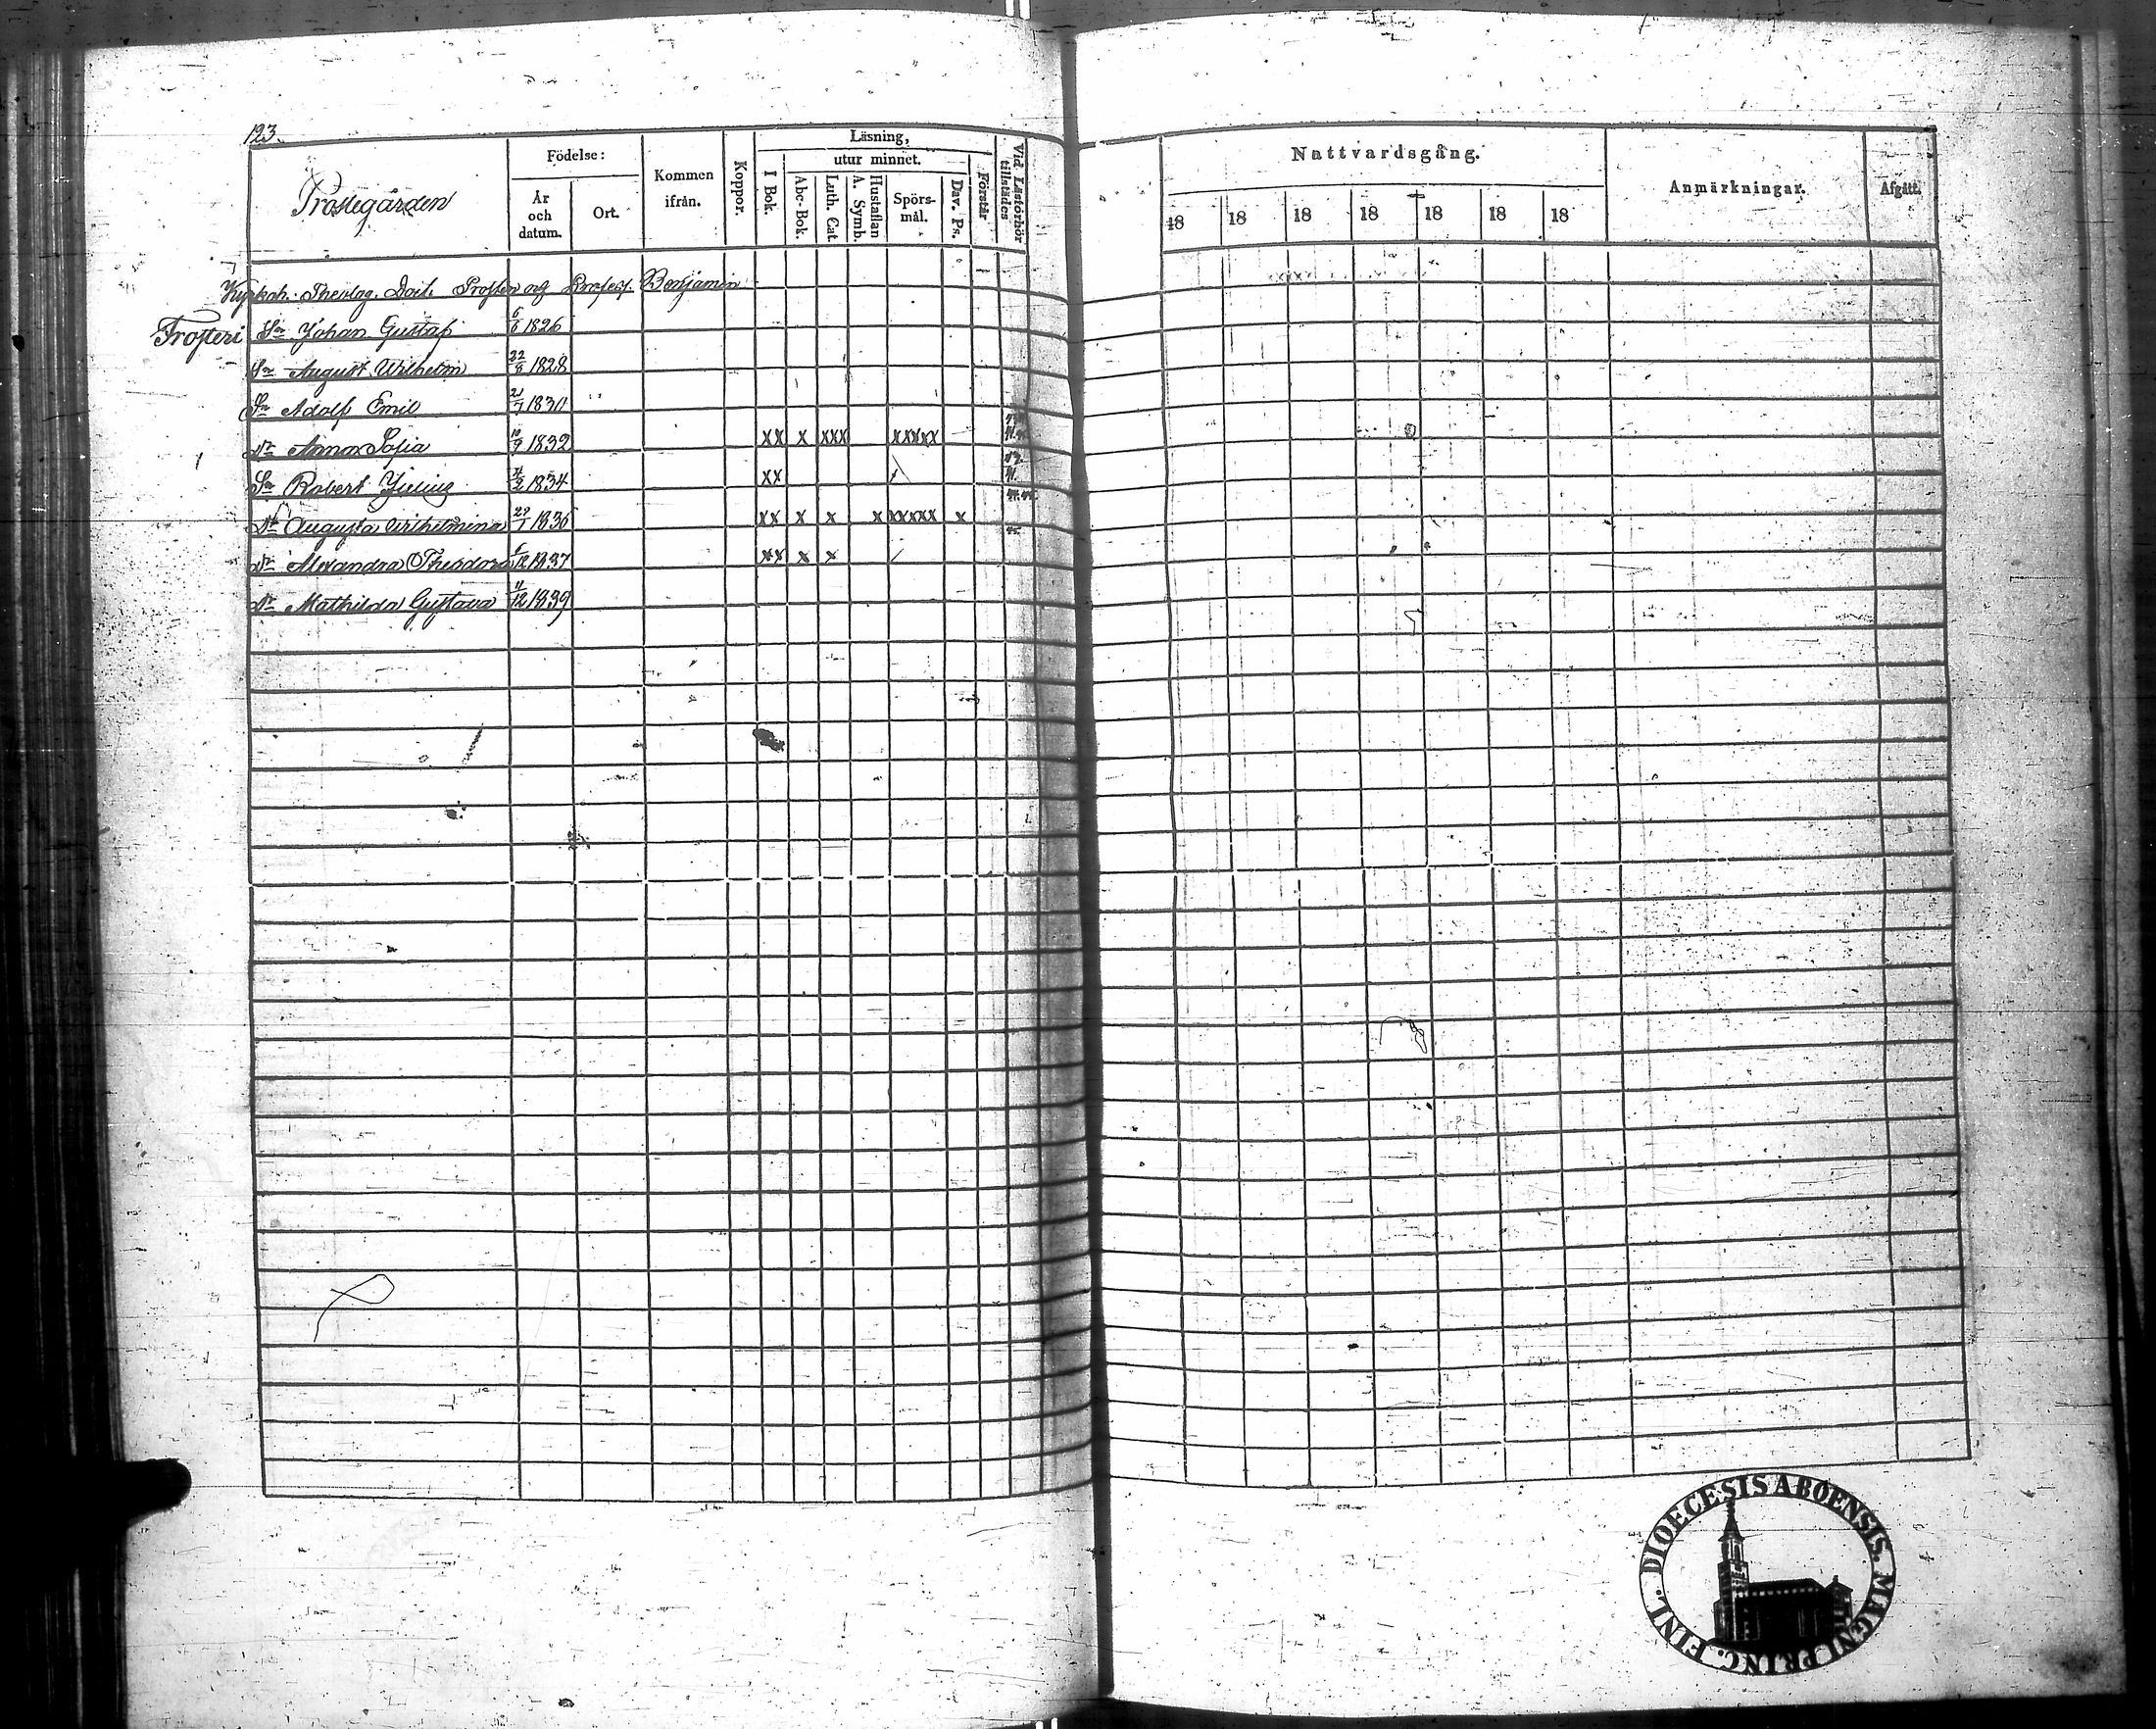 123.
Prostegården
Födelse:
År
och
datum.
Ort.
Kommen
ifrån.
Koppor.
Läsning,
I Bok.
utur minnet.
Abc-Bok.
Luth. Cat.
Hustaflan
A. Symb.
Spörs-
mål.
Dav. Ps.
Förstår
Vid Läsförhör
tillstädes
Nattvardsgång.
18 18 18 18 18 18 18
Anmärkningar.
Afgått.
Kyrkoh. Theolog. Doct. Prosten och Profess. Benjamin
Frosteri
Sn Johan Gustaf 6/6 1826
Sn August Wilhelm 22/8 1828
Sn Adolf Emil 1830
Dr Anna Sofia 10/9 1832 xx x xxx xxxxx
Sn Robert Julius 4/2 1834 xx
Dr Augusta Wilhelmina 29/1 1836 xx x x x xxxxx x
Dr Alexandra Theodora 6/12 1837 xx x x
Dr Mathilda Gustava 11/12 1839
DIOECESIS ABOENSIS. MAGNI PRINC. FINL.